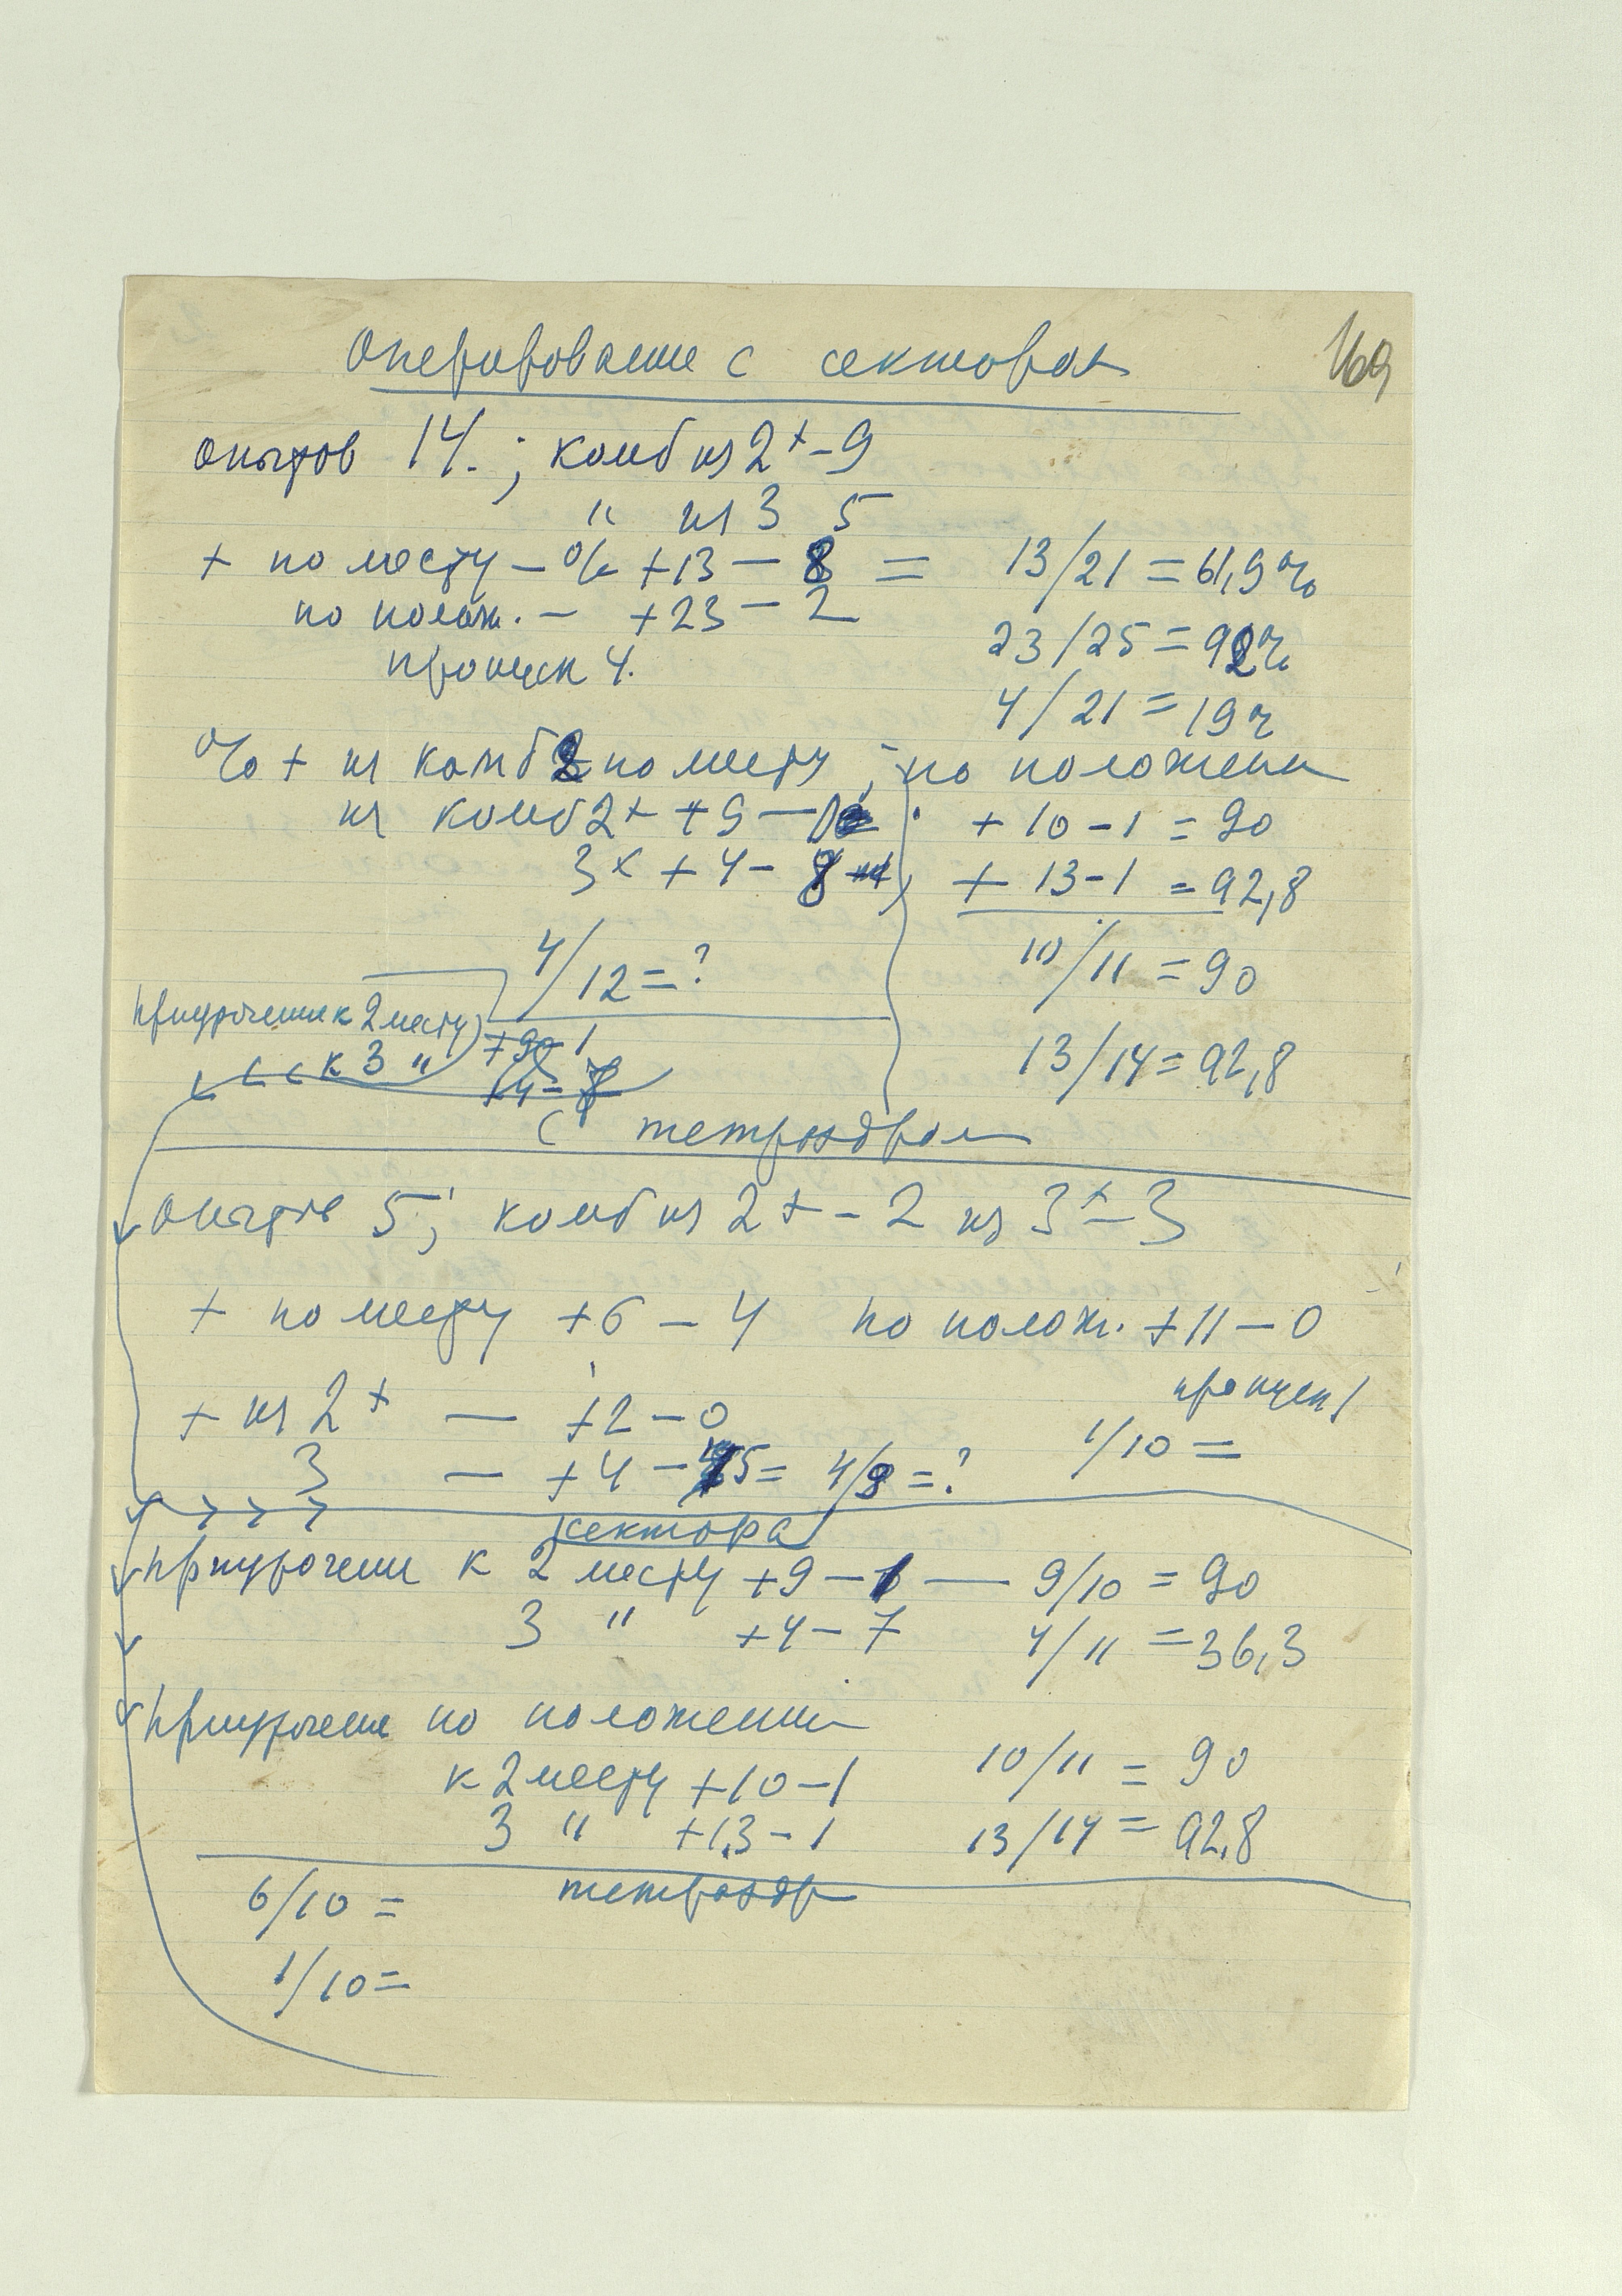 169
Оперирование с сектором
опытов 14.; комб из 2х – 9
" из 3 5
+ по месту – % +13 – 8 = 13/21 = 61,9%
по полож. – +23 – 2
23/25 = 92%
пропуск 4.
4/21 = 19%
% + из комб 2 по месту ; по положени
из комб 2х +9 – 1 + 10 – 1 = 90
3х + 4 – 8 + 13 – 1 = 92,8
4/12 = ? 10/11 = 90
приурочение к 2 месту +9 – 1
к 3 " +4 – 7
13/14 = 92,8
с тетраэдром
опытов 5; комб из 2х – 2 из 3х – 3
+ по месту +6 – 4 по полож. +11 – 0
пропуск 1
+ из 2х — +2 – 0 1/10 =
3 — +4 – 5 = 4/9 = ?
сектора
приурочение к 2 месту +9 – 1 — 9/10 = 90
3 " +4 – 7 4/11 = 36,3
приурочение по положению
к 2 месту +10 – 1 10/11 = 90
3 " +13 – 1 13/14 = 92,8
тетраэдр
6/10 =
1/10 =